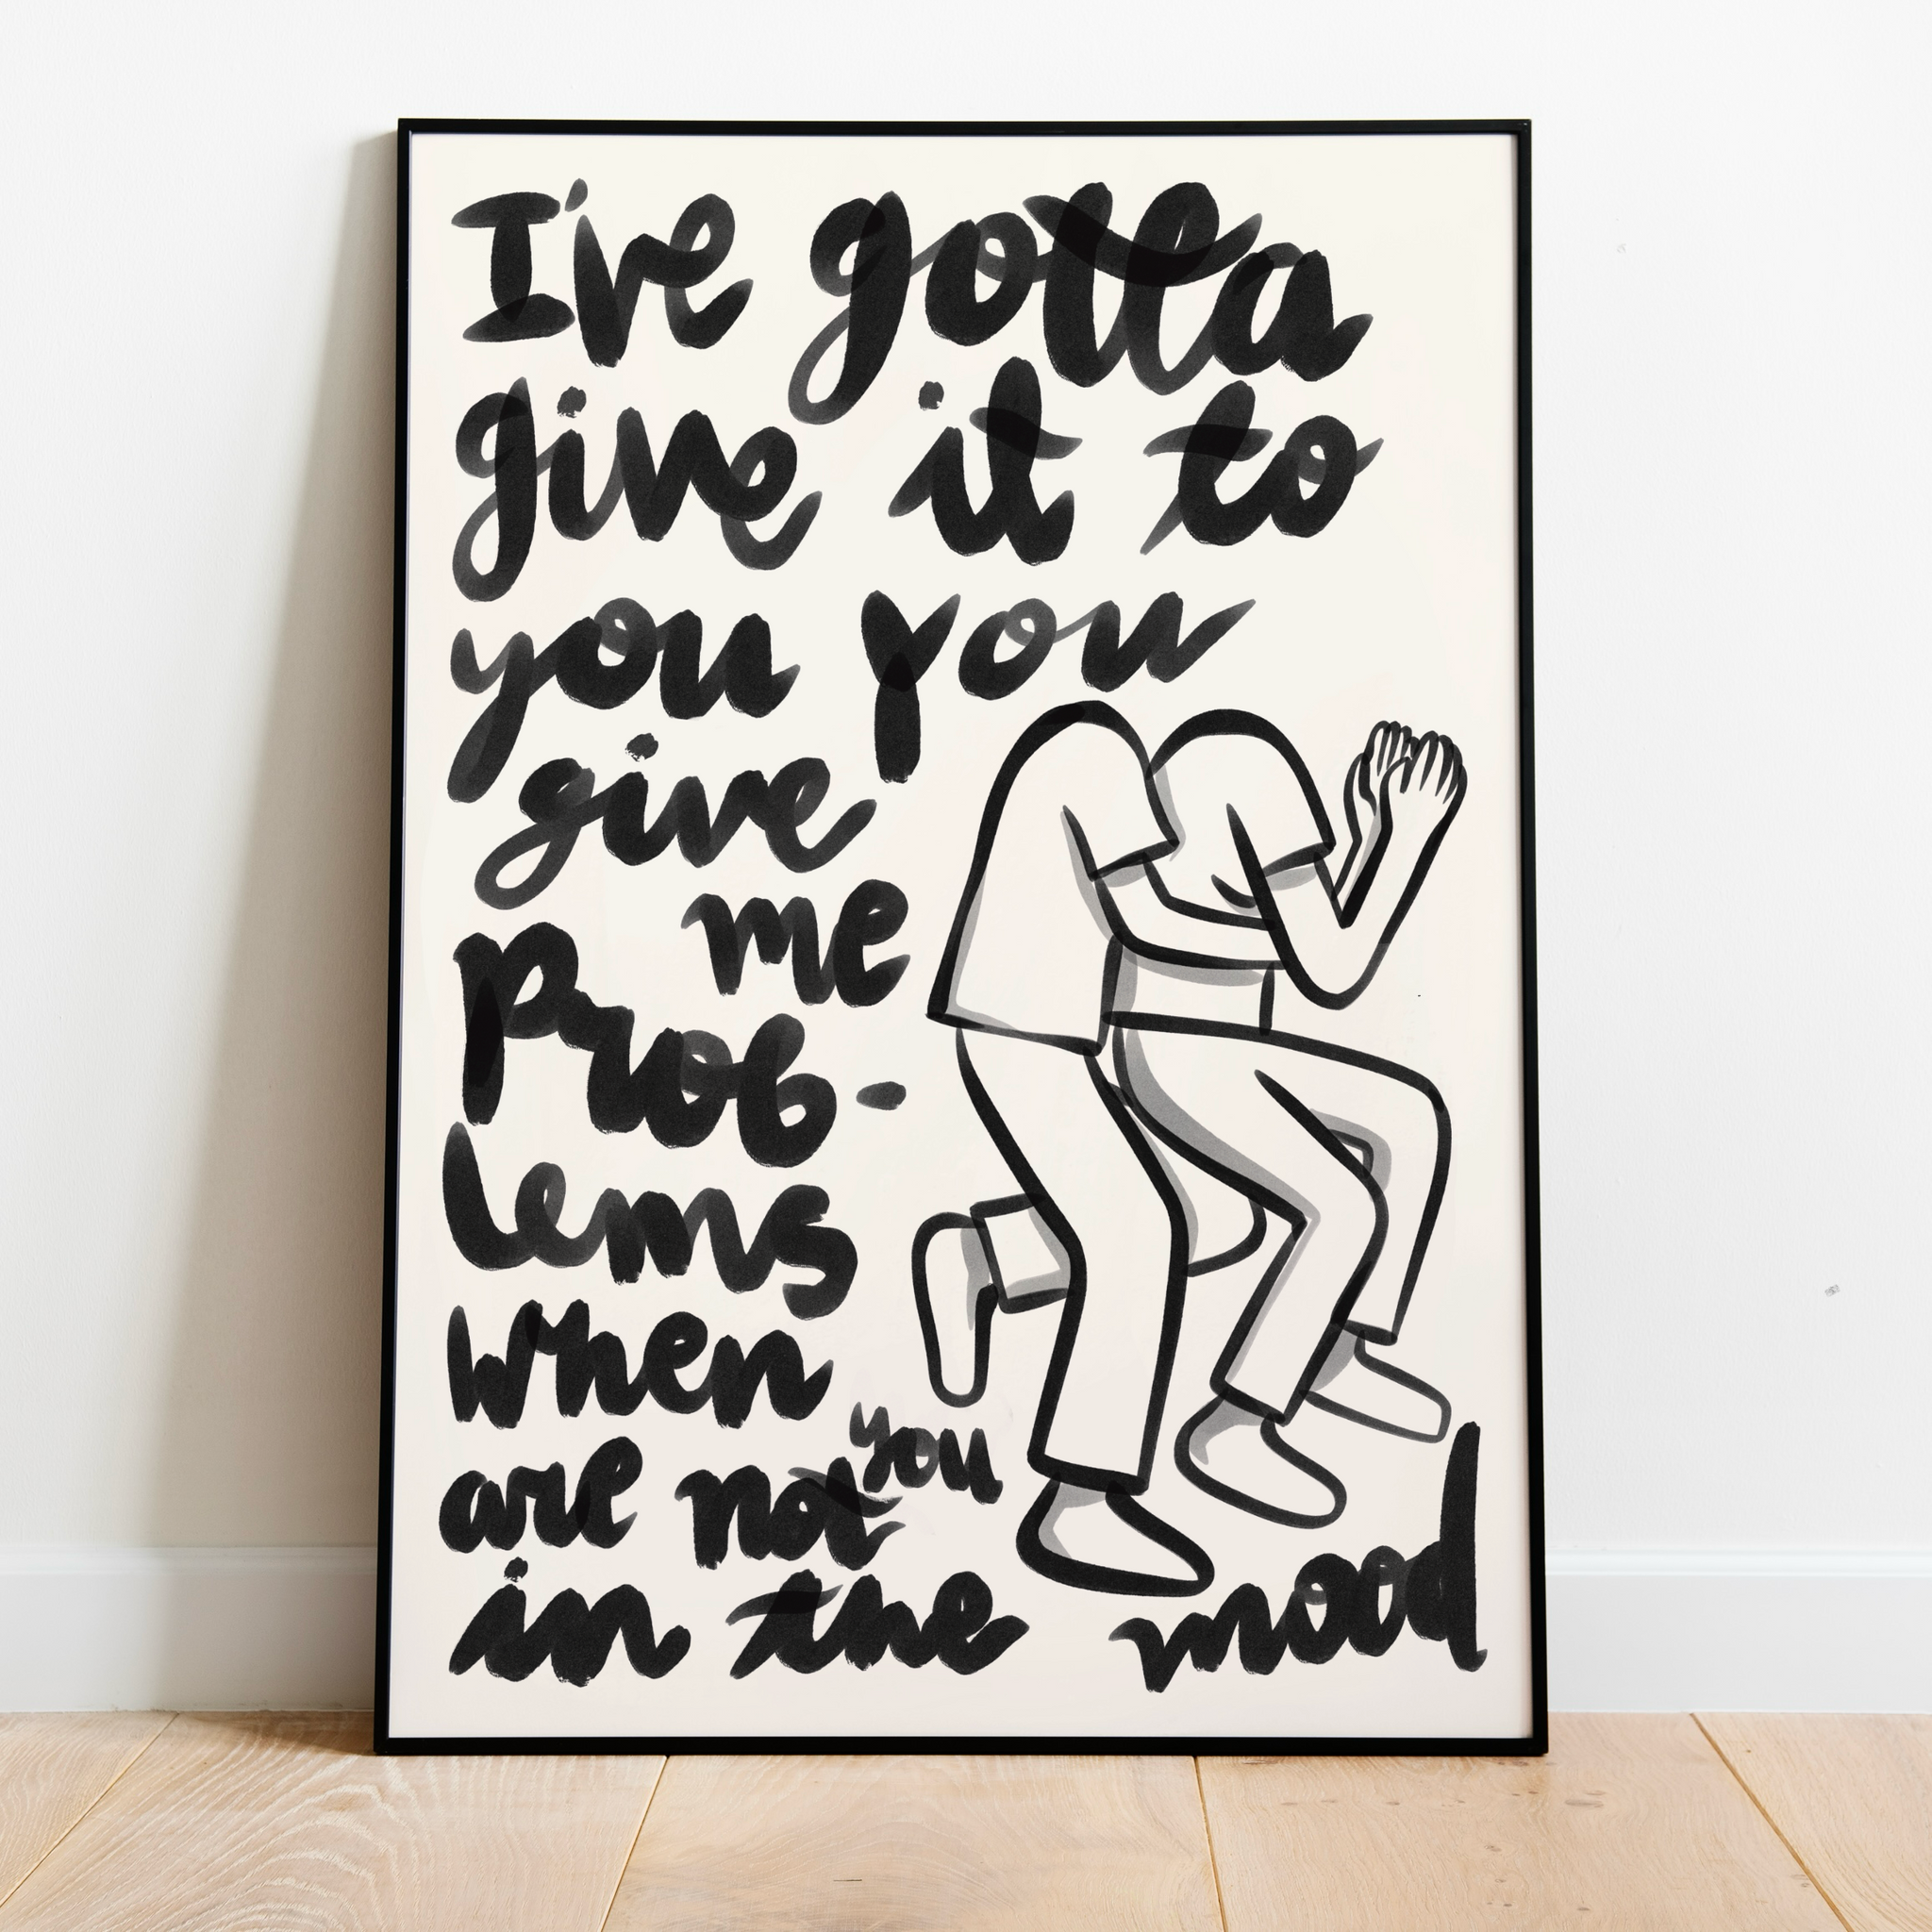 I've gotta
give it to
you you
give
me
Prob-
lems
when
you
are not
in the mood